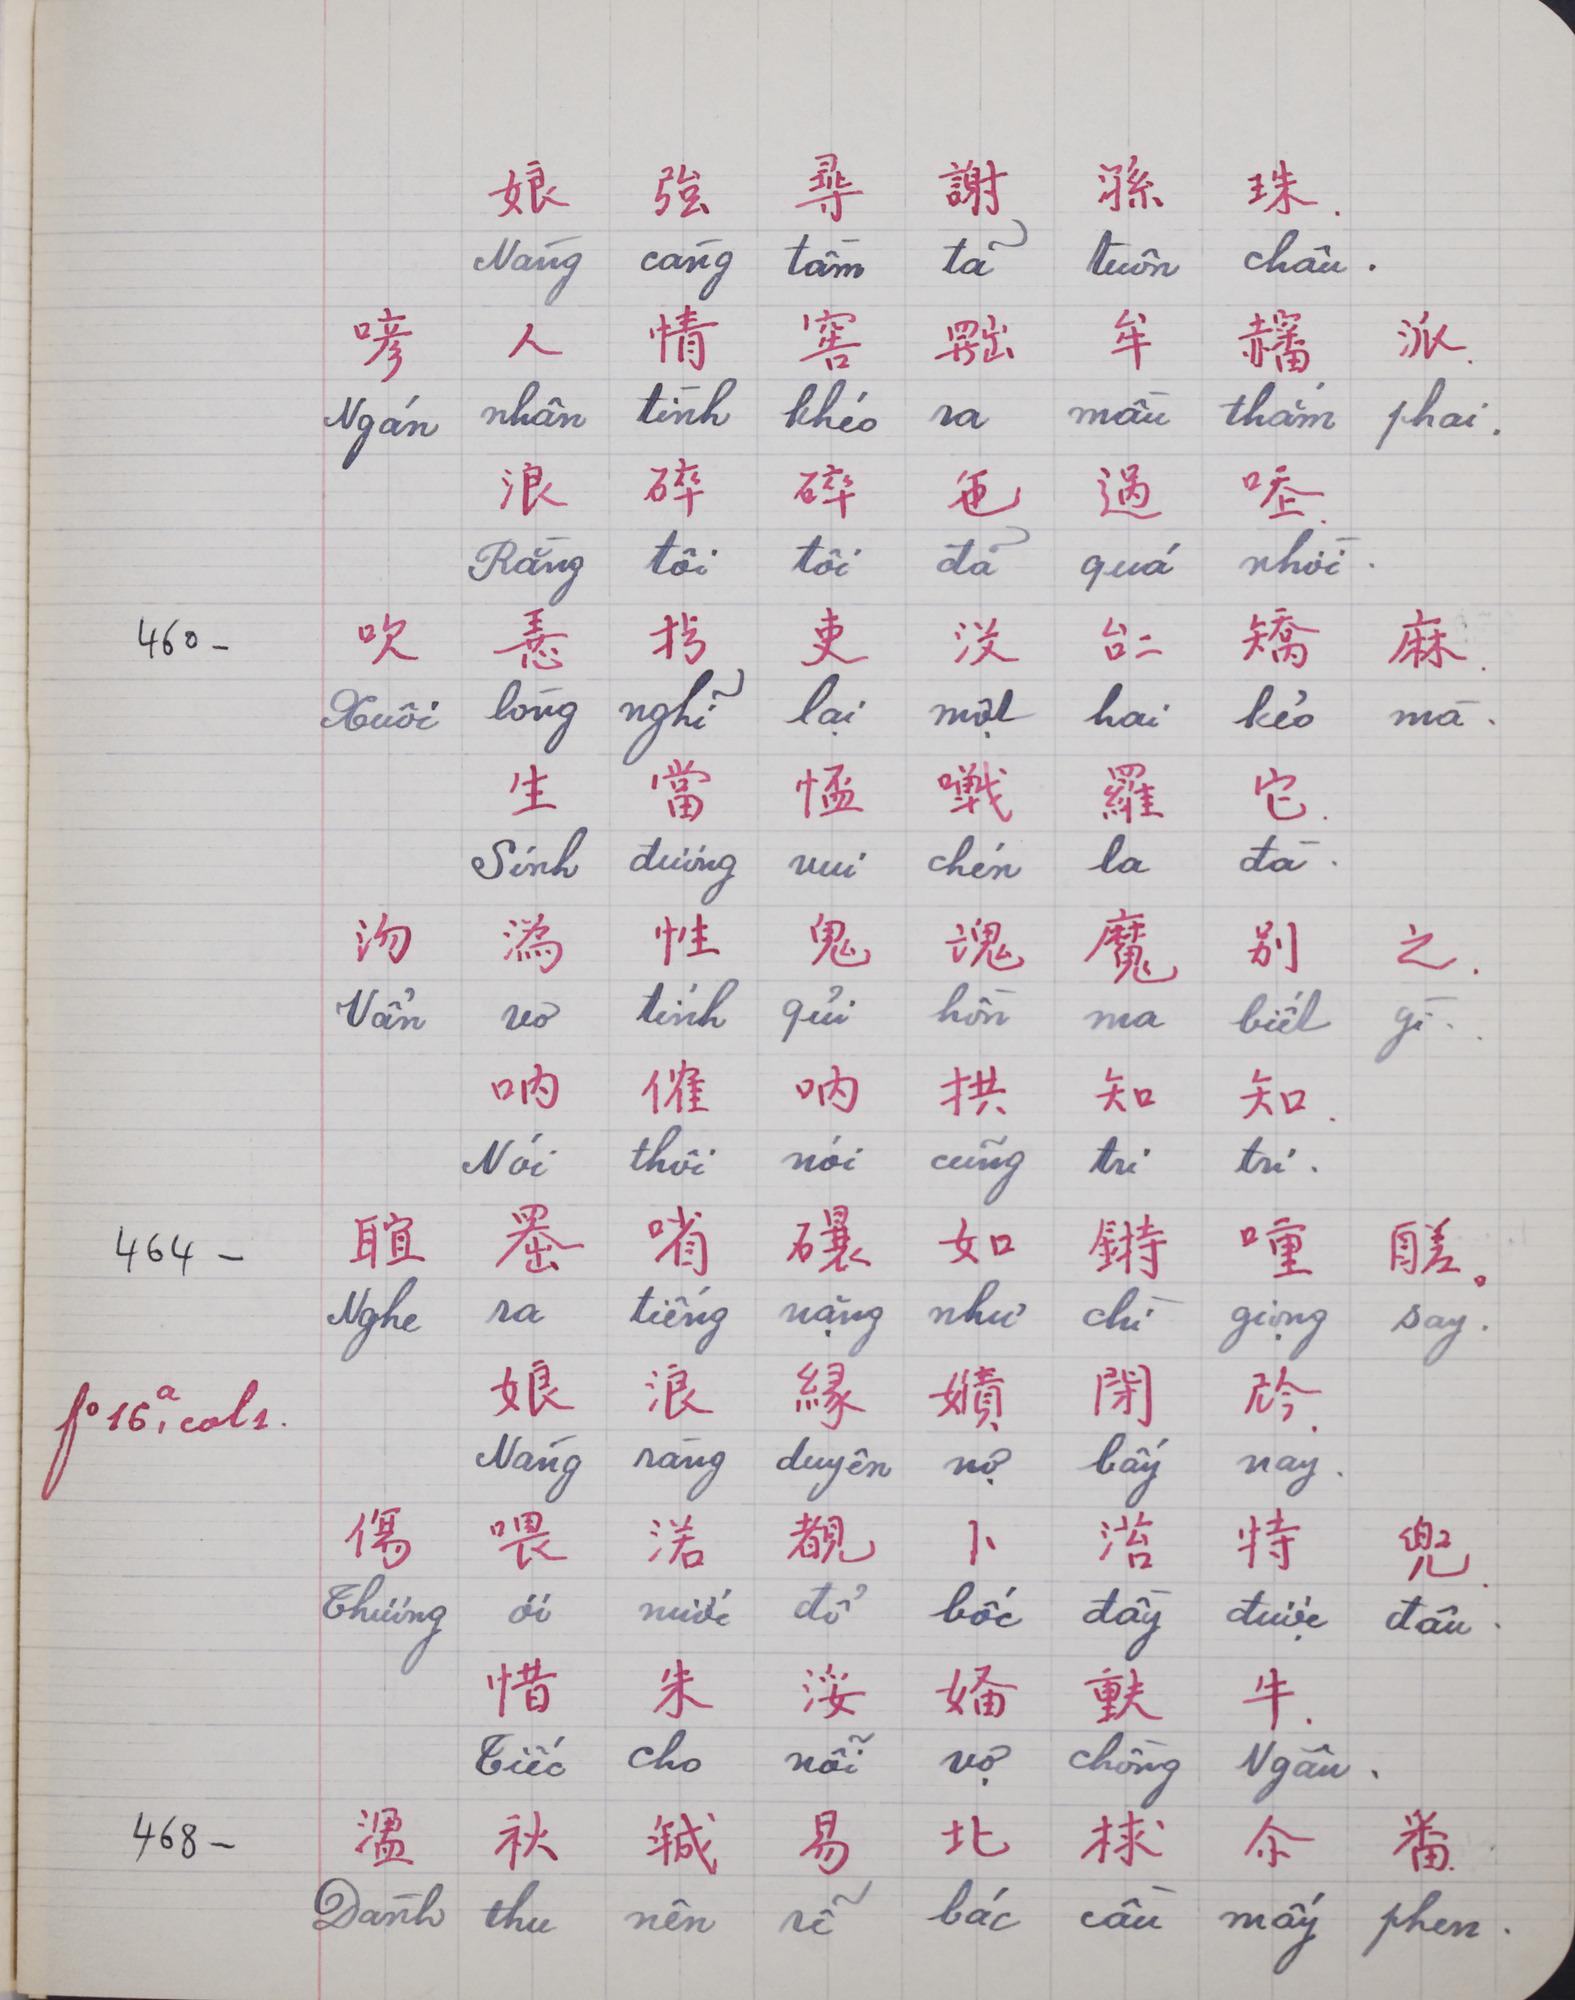 娘 強 尋 謝 浴 珠.
Nàng càng tầm tã tuôn châu.
喭 人 情 窖 𠚢 牟 𧹻 派.
Ngán nhân tình khéo ra mầu thắm phai.
浪 碎 碎 㐌 過 𠵘.
Rằng tôi tôi đã quá nhời.
460- 吹 𢚸 𢪱 吏 沒 𠄩 矯 麻.
Xuôi lòng nghĩ lại một hai kẻo mà.
生 當 𢝙 𡃹 羅 它.
Sinh đương vui chén la đà.
沕 潙 性 鬼 魂 魔 别 之.
Vẩn vơ tính quỉ hồn ma biết gì.
吶 催 吶 拱 知 知.
Nói thôi nói cũng tri tri.
464- 𦖑 𠚢 㗂 𥗾 如 𨪝 喠 醝。
Nghe ra tiếng nặng như chì giọng say.
fº 16ª, col 1. 娘 浪 緣 𡣨 閉 𠉞.
Nàng rằng duyên nợ bấy nay.
傷 喂 渃 覩 卜 滀 特 兜.
Thương ôi nước đổ bốc đầy được đâu.
惜 朱 浽 𡞕 𨤮 牛.
Tiếc cho nỗi vợ chồng Ngâu.
468- 溋 秋 𢧚 易 北 梂 尒 番.
Dành thu nên rễ bác cầu mấy phen.